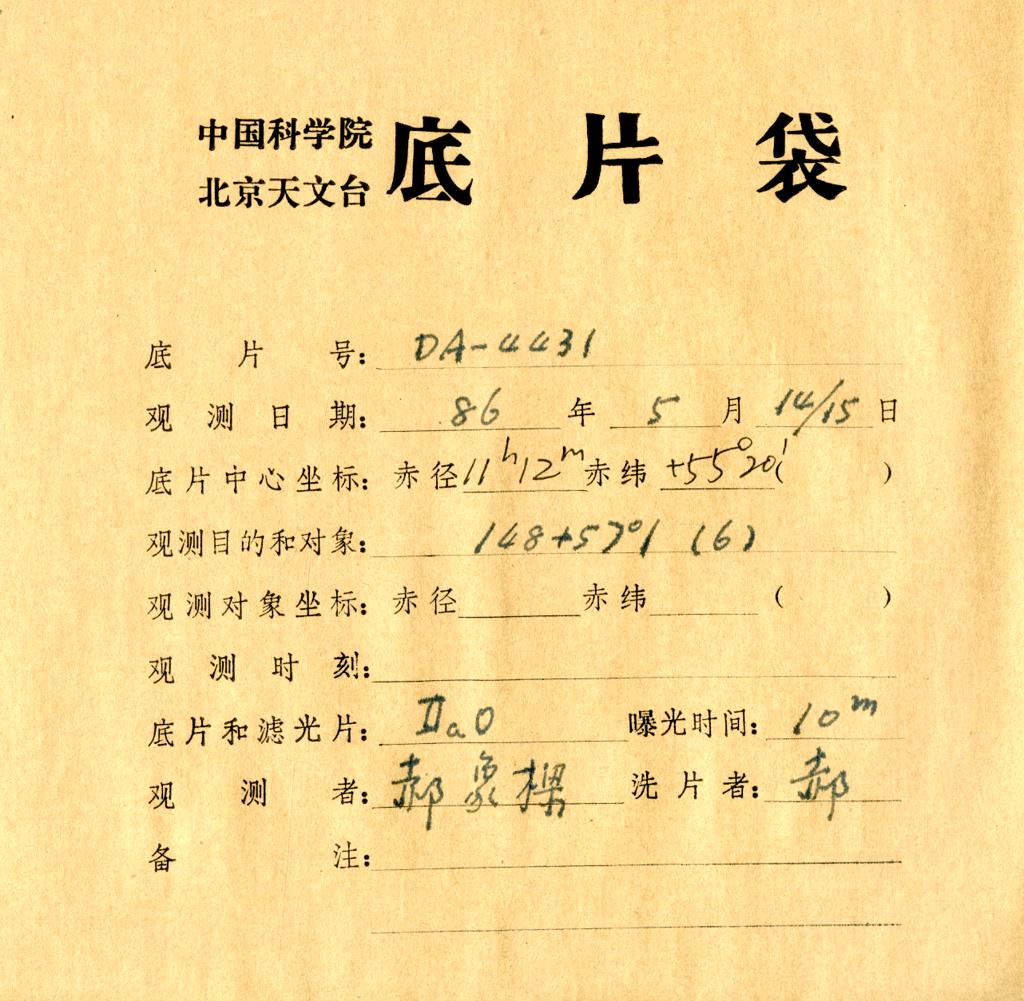 中国科学院
北京天文台
底片袋
底片号：DA-4431
观测日期：86年5月14/15日
底片中心坐标：赤径11ʰ12ᵐ赤纬+55°20′（ ）
观测目的和对象：148+57°1 (6)
观测对象坐标：赤径 赤纬 （ ）
观测时刻：
底片和滤光片：IIaO 曝光时间：10ᵐ
观测者：郝象樑 洗片者：郝
备注：